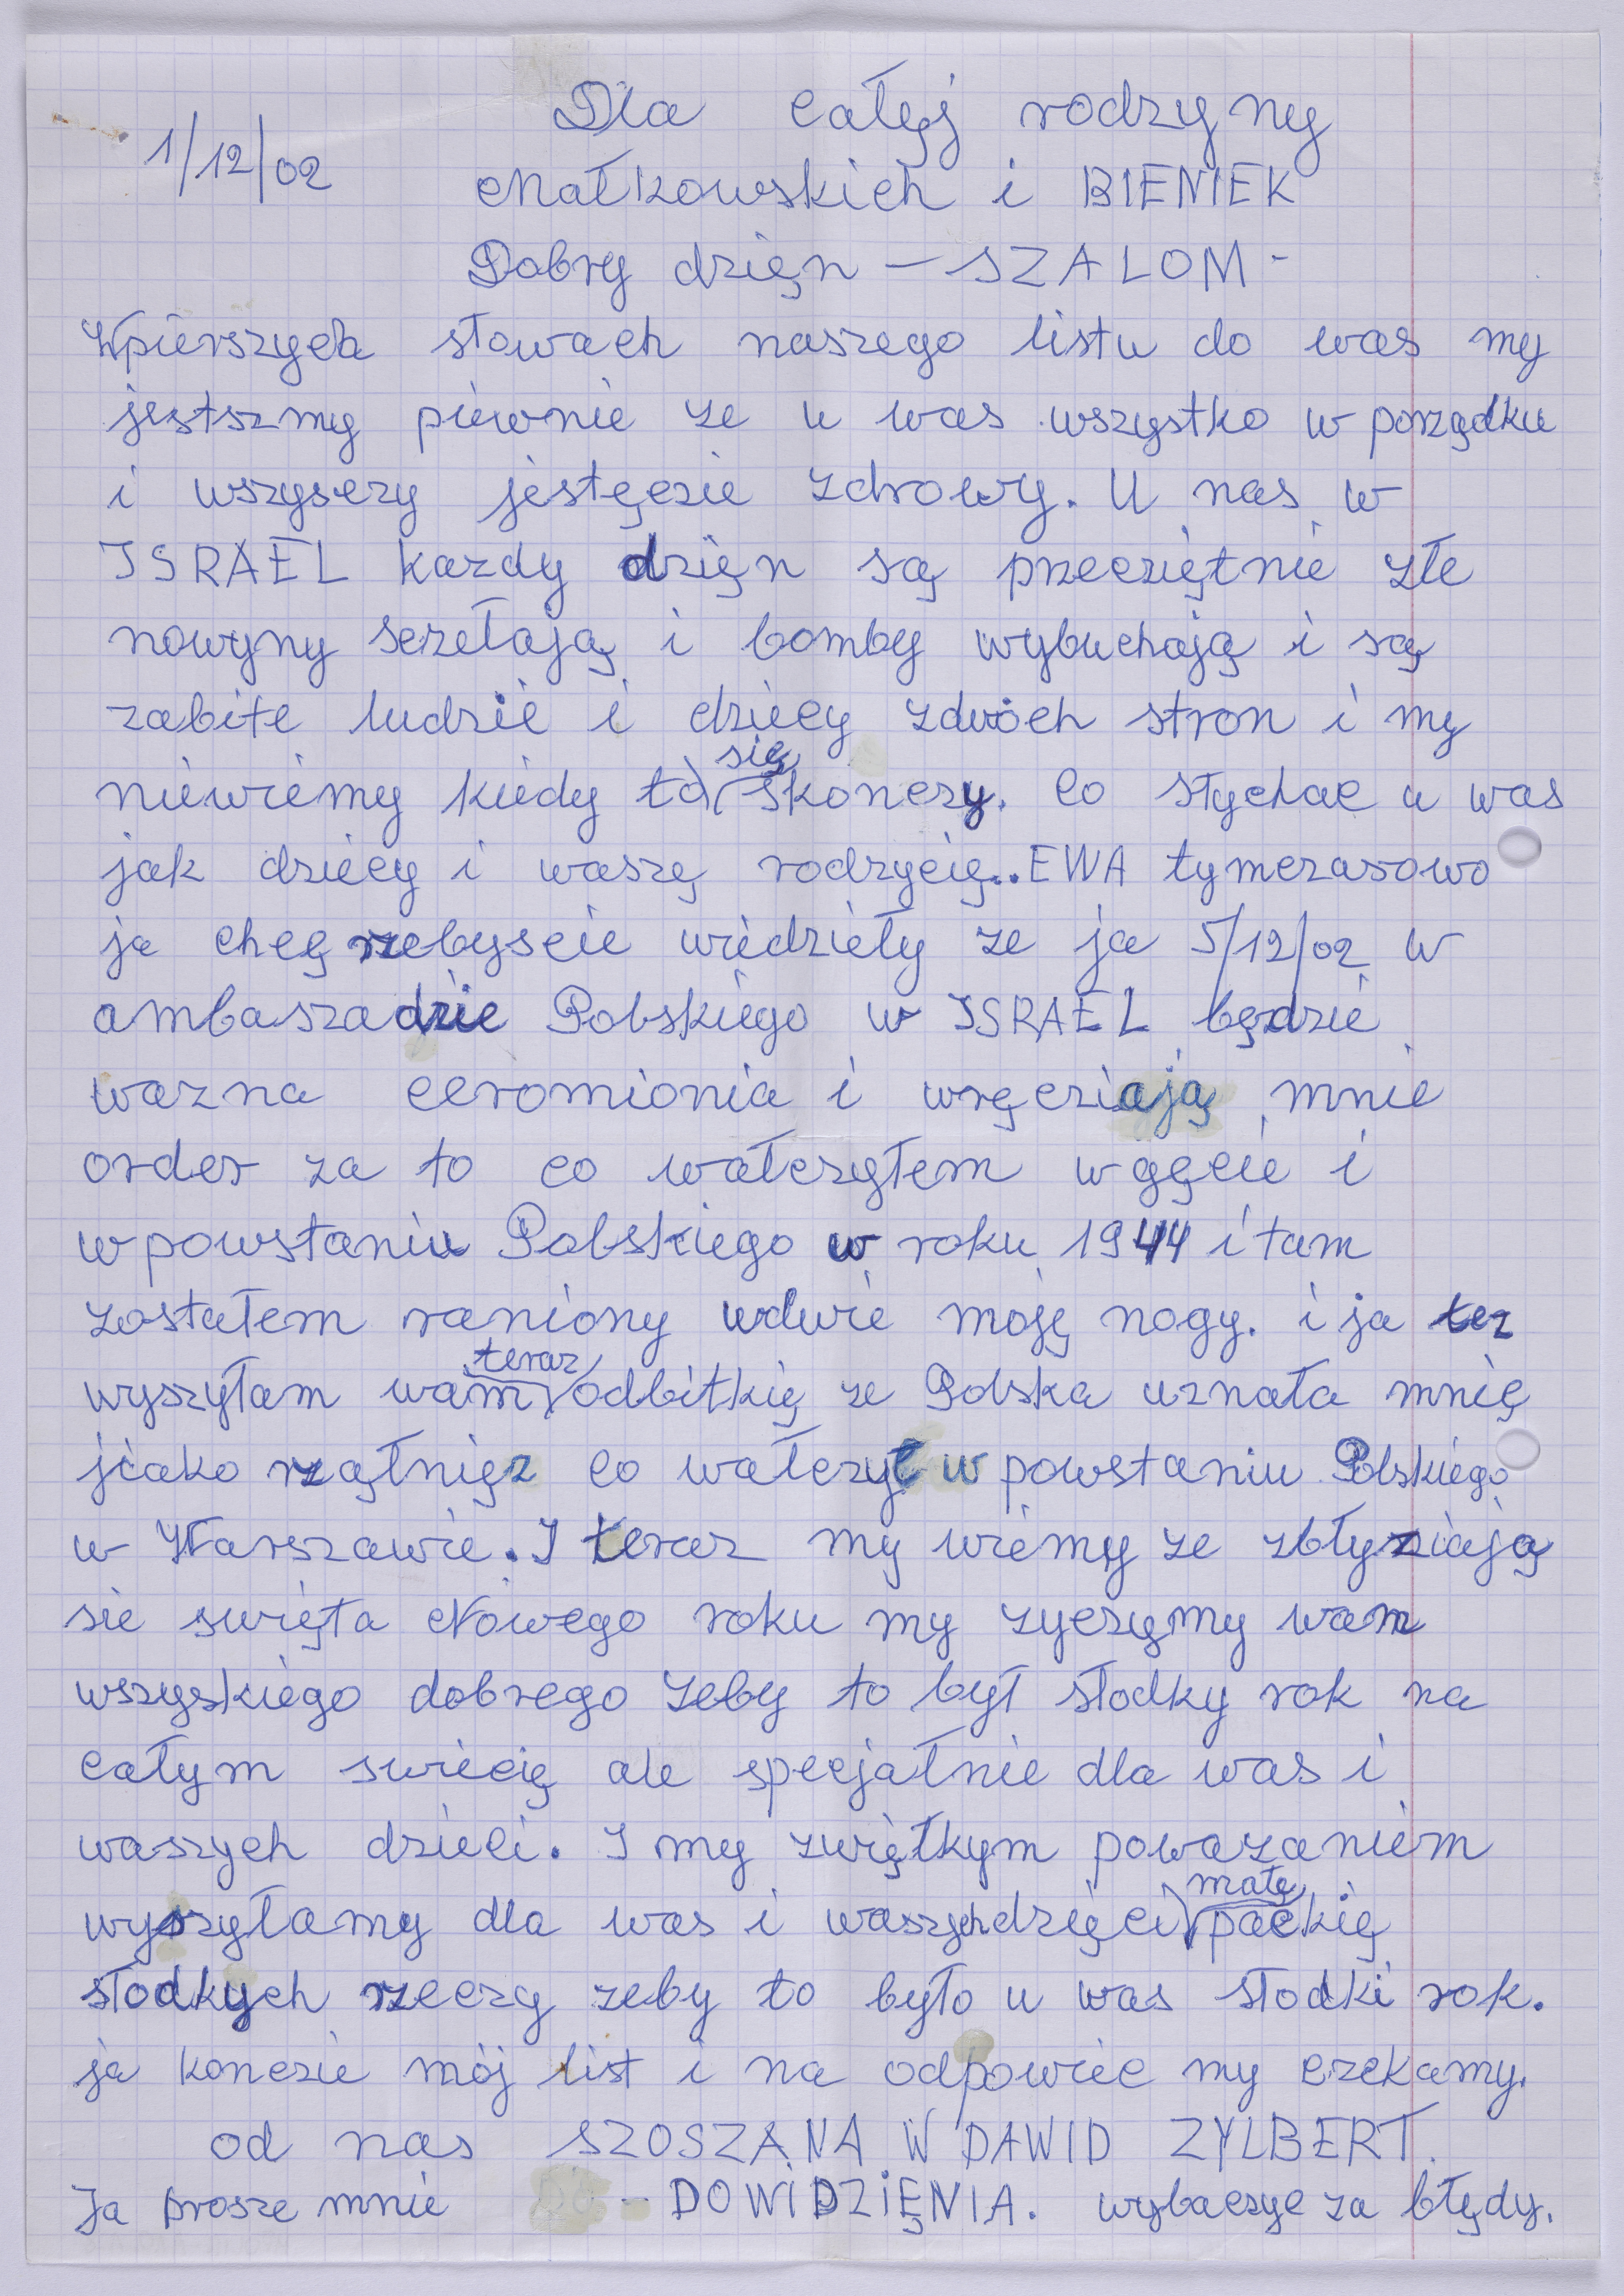 1/12/02
Dla całęj rodzyny
Małkowskich i BIENIEK
Dobry dzięn – SZALOM -
Wpierszych słowach naszego listu do was my
jestszmy piewnie ze u was wszystko w porządku
i wszysczy jestęczie zdrowy. U nas w
ISRAEL kazdy dzięn są przecziętnie złe
nowyny sczełają i bomby wybuchają i są
zabite ludzie i dziecy zdwóch stron i my
niewiemy kiedy to się skonczy. Co słychac u was
jak dziecy i waszę rodzycię.. EWA tymczasowo
ja chcę rzebyscie wiedzieły ze ja 5/12/02 w
ambaszadzie Polskiego w ISRAEL będzie
wazna ceromionia i wręcziają mnie
order za to co wałczyłem w gęcie i
w powstaniu Polskiego w roku 1944 i tam
zostałem raniony wdwie moję nogy. i ja tez
wyszyłam wam teraz odbitkię ze Polska uznała mnię
jiako rząłnięz co wałczył w powstaniu Polskiego
w Warszawie. I teraz my wiemy ze zbłyziają
sie swięta Nowego roku my zyczymy wam
wszyskiego dobrego zeby to był słodky rok na
całym swiecię ale specjałnie dla was i
waszych dzieci. I my zwięłkym powazaniem
wyszyłamy dla was i waszych dzięci małę packię
słodkych rzeczy zeby to było u was słodki rok.
ja konczie mój list i na odpowiec my czekamy.
od nas SZOSZANA W DAWID ZYLBERT.
Ja prosze mnie – DOWIDZIĘNIA. wybaczyc za błędy.